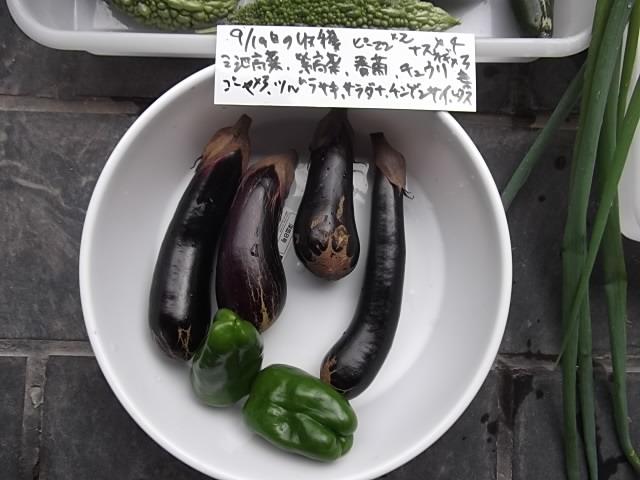 9/19日の収穫 ピーマン×2 ナス×4
三池高菜、紫高菜、春菊、キュウリ
ゴーヤ×3、ツルムラサキ、サラダナ、チンゲンサイ、レタス